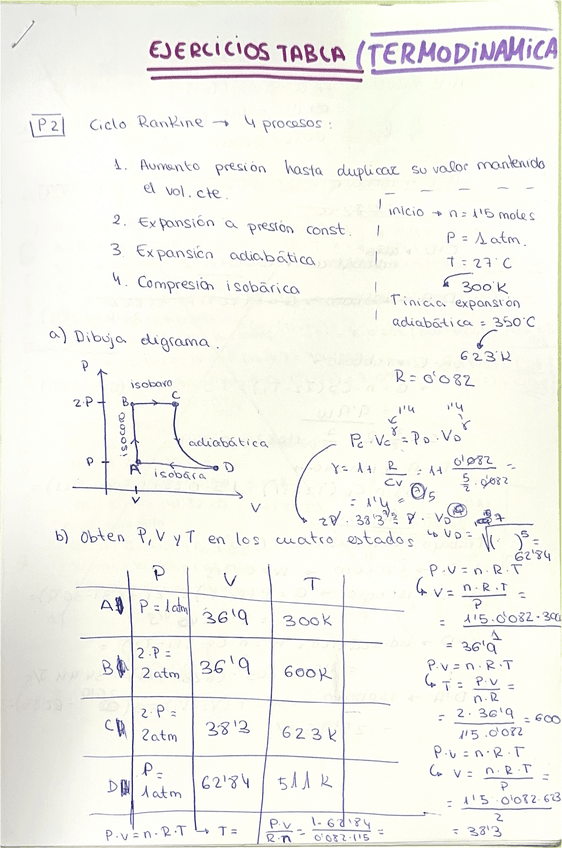 EJERCICIOS TABLA / TERMODINAMICA
P2 Ciclo Rankine → 4 procesos:
1. Aumento presión hasta duplicar su valor mantenido
el vol. cte.
2. Expansión a presión const.
3 Expansión adiabática
4. Compresión isobárica
inicio → n = 1'5 moles
P = 1 atm.
T = 27ºC
300ºK
T inicia expansión
adiabática = 350ºC
623ºK
R = 0'082
a) Dibuja digrama.
P
2·P
P
isobaro
B
C
isocoro
adiabática
A
isobára
D
V
V
1'4 1'4
Pc · Vc^γ = PD · VD^γ
γ = 1 + R/CV = 1 + 0'082 / (5/2 · 0'082) =
= 1'4 = 7/5
2P · 38'3^7/5 = P · VD
VD = √( )^5 =
62'84
b) Obten P, V y T en los cuatro estados
P V T
A P = 1 atm 36'9 300K
B 2·P = 2 atm 36'9 600K
C 2·P = 2 atm 38'3 623K
D P = 1 atm 62'84 511K
P·V = n·R·T → T = P·V / R·n = 1·62'84 / 0'082·1'5 =
P·V = n·R·T
V = n·R·T / P =
= 1'5·0'082·300 / 1
= 36'9
P·V = n·R·T
T = P·V / n·R =
= 2·36'9 / 1'5·0'082 = 600
P·V = n·R·T
V = n·R·T / P =
= 1'5·0'082·623 / 2
= 38'3